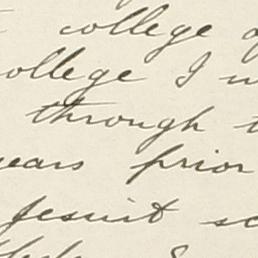 college
college I
through
years prior
Jesuit